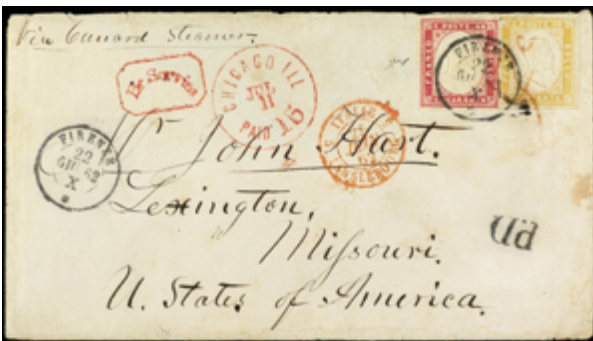 Via Cunard Steamer.
Br. Service
CHICAGO ILL
JUL
11
PAID 15
FIRENZE
22
GIU 62
X
FIRENZE
22
X
ITALIE
Mr John Hart.
Lexington,
Mißouri.
U. States of America.
PD